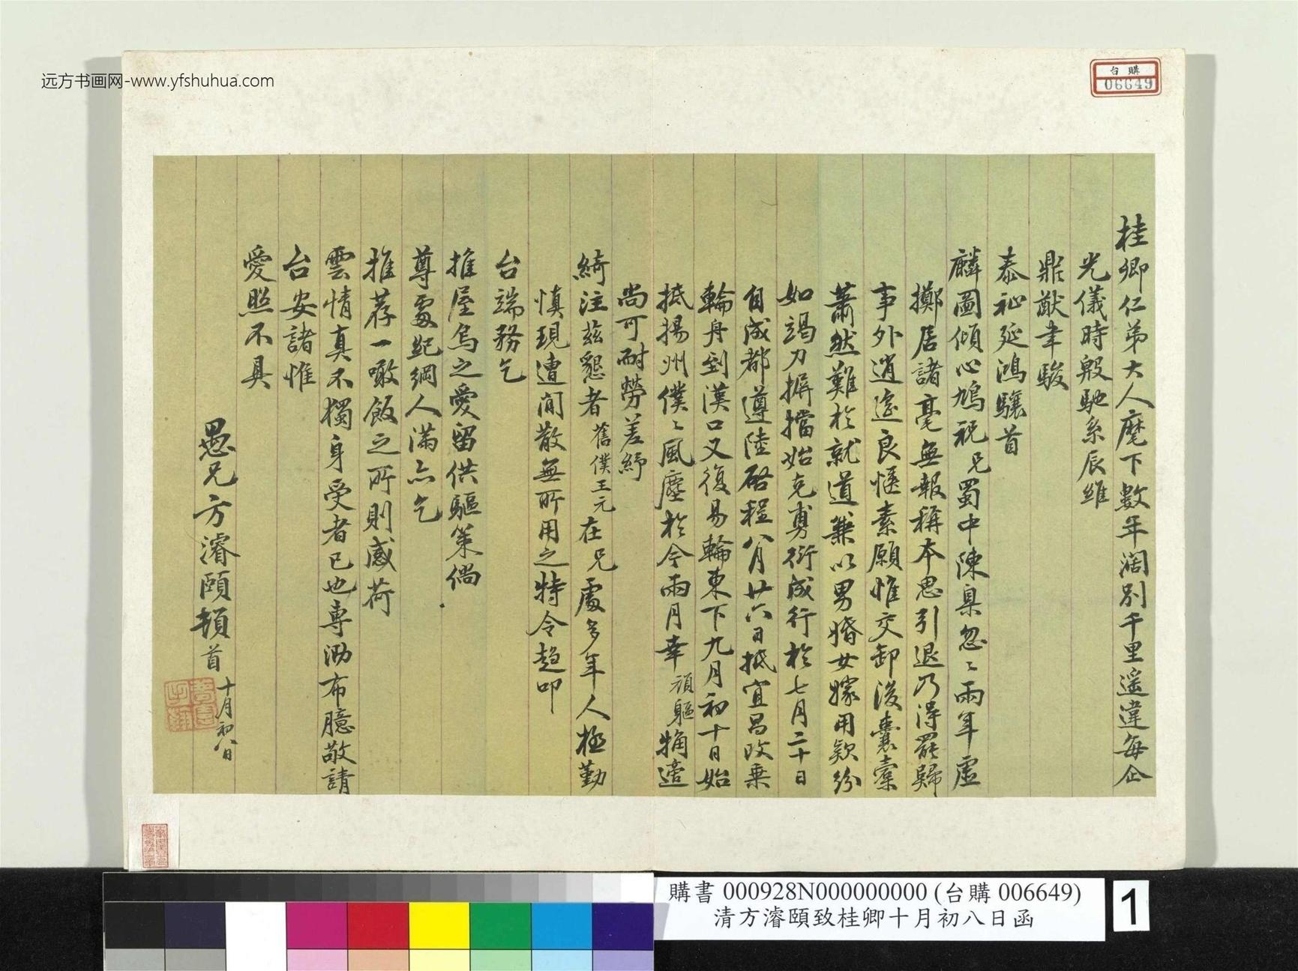 远方书画网-www.yfshuhua.com
台購
006649
桂卿仁弟大人麾下數年濶別千里遥違每企
光儀時殷馳系辰維
鼎猷聿駿
泰祉延鴻驤首
麟圖傾心鳩祝兄蜀中陳臬忽〻兩年虛
擲居諸毫無報稱本思引退乃得罷歸
事外逍遥良愜素願惟交卸後囊橐
蕭然難於就道兼以男婚女嫁用款紛
如竭力摒擋始克勇衍成行於七月二十日
自成都遵陸啓程八月廿六日抵宜昌改乗
輪舟到漢口又復易輪東下九月初十日始
抵揚州僕〻風塵於今兩月幸頑軀犕適
尚可耐勞差紓
綺注茲懇者舊僕王元在兄處多年人極勤
慎現遭閒散無所用之特令趨叩
台端務乞
推屋烏之愛留供驅策倘
尊處紀綱人满亦乞
推荐一噉飯之所則感荷
雲情真不獨身受者已也專泐布臆敬請
台安諸惟
愛照不具
愚兄方濬頤頓首十月初八日
購書 000928N000000000 (台購 006649)
清方濬頤致桂卿十月初八日函
1